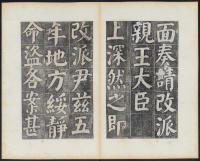 面奏請改派
親王大臣
上深然之即
改派尹茲五
年地方綏靜
命盜各案甚